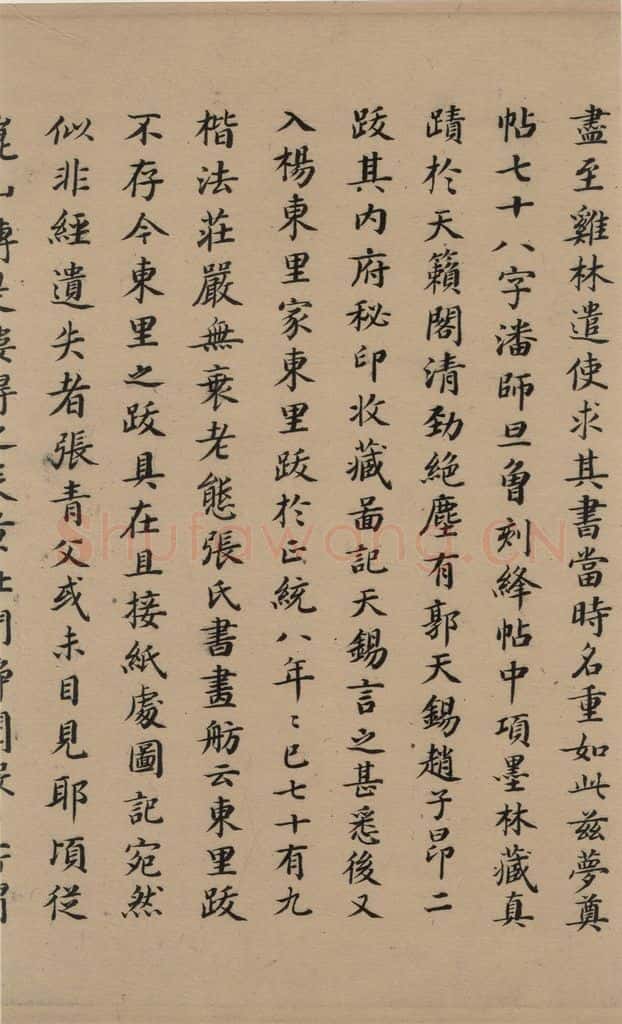 盡至雞林遣使求其書當時名重如此茲夢奠
帖七十八字潘師旦曾刻絳帖中項墨林藏真
蹟於天籟閣清勁絕塵有郭天錫趙子昂二
跋其内府秘印收藏啚記天錫言之甚悉後又
入楊東里家東里跋於正統八年〻已七十有九
楷法莊嚴無衰老態張氏書畫舫云東里跋
不存今東里之跋具在且接紙處圖記宛然
似非經遺失者張青父或未目見耶頃從
Shufawang.CN